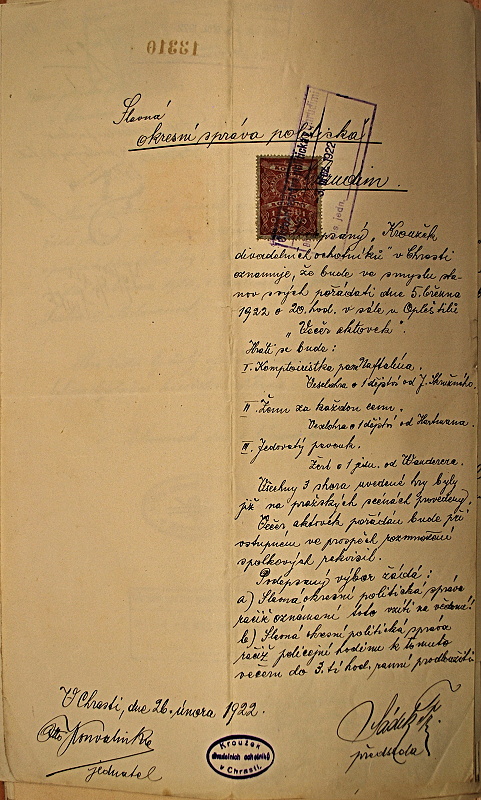 13310
Slavná
okresní správa politická
Chrudim.
1922
"Kroužek
divadelních ochotníků" v Chrasti
oznamuje, že bude ve smyslu sta-
nov svých pořádati dne 5. března
1922 o 20. hod. v sále u Opletilů
"Večer aktovek".
Hráti se bude:
I. Komptoiristka paní Naftalína.
Veselohra o 1 dějství od J. Skružného.
II. Ženu za každou cenu.
Veselohra o 1 dějství od Hartmana.
III. Jedovatý pavouk.
Žert o 1 jedn. od Wanderera.
Všechny 3 shora uvedené hry byly
již na pražských scénách provedeny.
Večer aktovek pořádán bude při
vstupném ve prospěch rozmnožení
spolkových rekvisit.
Podepsaný výbor žádá:
a) Slavná okresní politická správa
račiž oznámení toto vzíti na vědomí!
b) Slavná okresní politická správa
račiž policejní hodinu k tomuto
večeru do 3. tí hod. ranní prodloužiti
V Chrasti, dne 26. února 1922.
jednatel
předseda
Kroužek
divadelních ochotníků
v Chrasti.